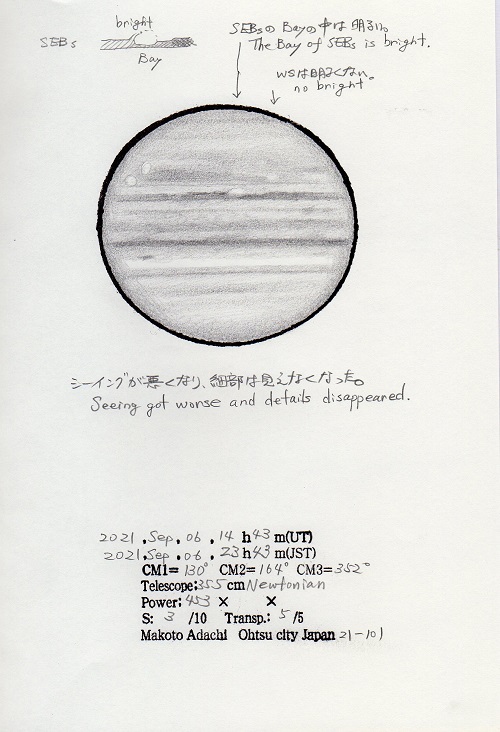 bright
SEBs
Bay
SEBsのBayの中は明るい。
The Bay of SEBs is bright.
WSは明るくない。
no bright.
シーイングが悪くなり、細部は見えなくなった。
Seeing got worse and details disappeared.
2021.Sep.06.14 h43 m(UT)
2021.Sep.06.23 h43 m(JST)
CM1= 130° CM2= 164° CM3= 352°
Telescope:355 cm Newtonian
Power: 453 × ×
S: 3 /10 Transp.: 5 /5
Makoto Adachi Ohtsu city Japan 21-101